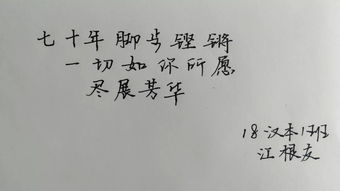 七十年脚步铿锵
一切如你所愿
尽展芳华
18汉本1班
江根友